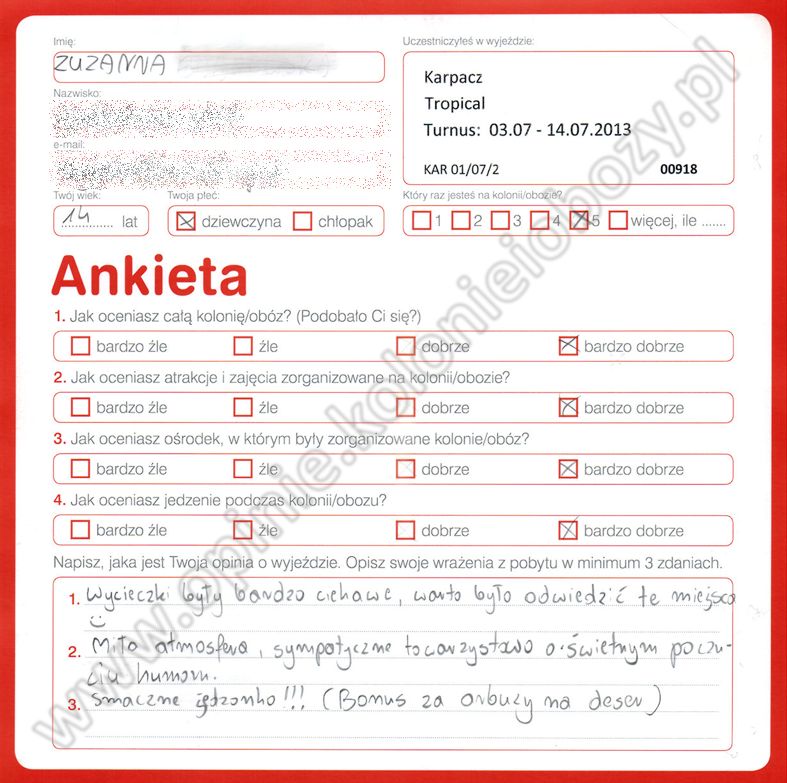 Imię:
ZUZANNA
Uczestniczyłeś w wyjeździe:
Karpacz
Tropical
Turnus: 03.07 - 14.07.2013
KAR 01/07/2 00918
Nazwisko:
e-mail:
Twój wiek:
14 lat
Twoja płeć:
dziewczyna chłopak
Który raz jesteś na kolonii/obozie?
1 2 3 4 5 więcej, ile .......
Ankieta
1. Jak oceniasz całą kolonię/obóz? (Podobało Ci się?)
bardzo źle źle dobrze bardzo dobrze
2. Jak oceniasz atrakcje i zajęcia zorganizowane na kolonii/obozie?
bardzo źle źle dobrze bardzo dobrze
3. Jak oceniasz ośrodek, w którym były zorganizowane kolonie/obóz?
bardzo źle źle dobrze bardzo dobrze
4. Jak oceniasz jedzenie podczas kolonii/obozu?
bardzo źle źle dobrze bardzo dobrze
Napisz, jaka jest Twoja opinia o wyjeździe. Opisz swoje wrażenia z pobytu w minimum 3 zdaniach.
1. Wycieczki były bardzo ciekawe, warto było odwiedzić te miejsca
2. Miła atmosfera, sympatyczne towarzystwo o świetnym poczu-
ciu humoru.
3. Smaczne jedzonko!!! (Bonus za arbuzy na deser)
www.opinie.kolonieiobozy.pl